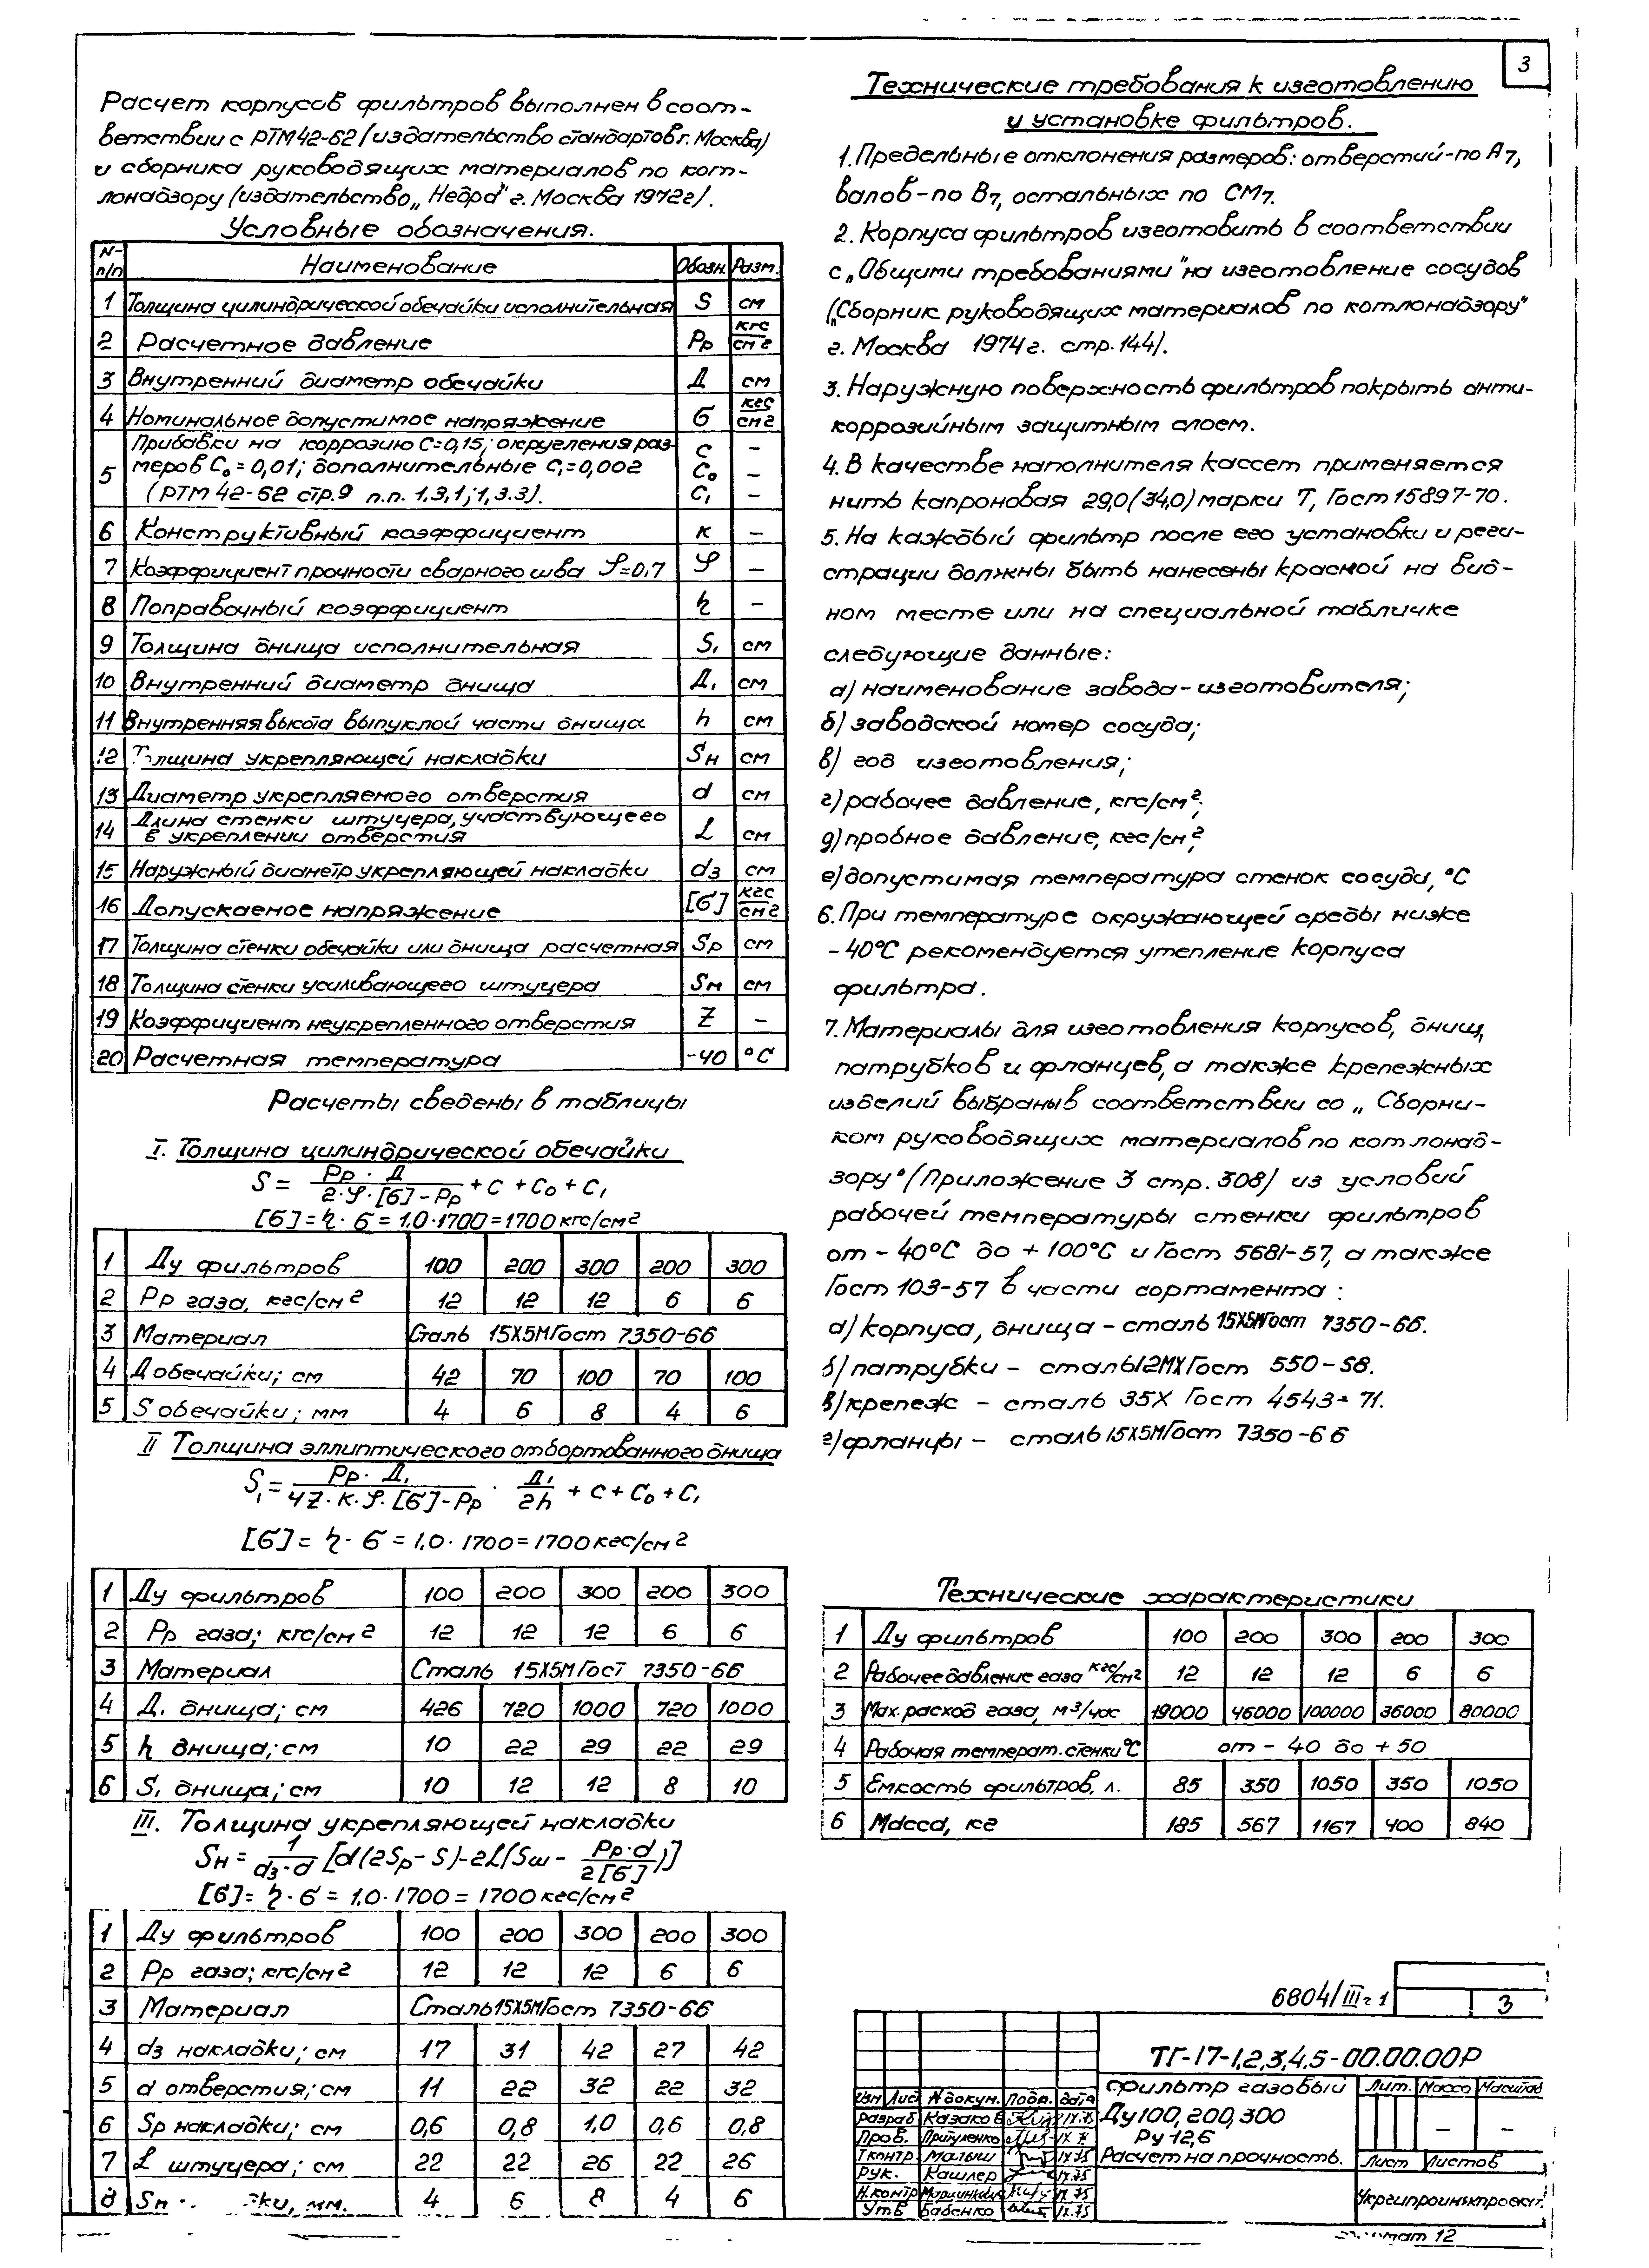 3
Расчет корпусов фильтров выполнен в соот-
ветствии с РТМ 42-62 (издательство стандартов г. Москва)
и сборника руководящих материалов по кот-
лонадзору (издательство „Недра" г. Москва 1972г).
Условные обозначения.
№ п/п Наименование Обозн. Разм.
1 Толщина цилиндрической обечайки исполнительная S см
2 Расчетное давление Рр кгс/см2
3 Внутренний диаметр обечайки Д см
4 Номинальное допустимое напряжение б кгс/см2
5 Прибавки на коррозию С=0,15; округления раз- С –
меров С₀ = 0,01; дополнительные С₁=0,002 С₀ –
(РТМ 42-62 стр.9 п.п. 1.3,1; 1,3.3). С₁ –
6 Конструктивный коэффициент к –
7 Коэффициент прочности сварного шва φ=0,7 φ –
8 Поправочный коэффициент η –
9 Толщина днища исполнительная S₁ см
10 Внутренний диаметр днища Д₁ см
11 Внутренняя высота выпуклой части днища h см
12 Толщина укрепляющей накладки Sн см
13 Диаметр укрепляемого отверстия d см
14 Длина стенки штуцера, участвующего
в укреплении отверстия L см
15 Наружный диаметр укрепляющей накладки d₃ см
16 Допускаемое напряжение [б] кгс/см2
17 Толщина стенки обечайки или днища расчетная Sр см
18 Толщина стенки усиливающего штуцера Sм см
19 Коэффициент неукрепленного отверстия Z –
20 Расчетная температура -40 °С
Расчеты сведены в таблицы
I. Толщина цилиндрической обечайки
S = Рр · Д / 2·φ·[б] - Рр + С + С₀ + С₁
[б] = η · б = 1.0·1700 = 1700 кгс/см2
1 Ду фильтров 100 200 300 200 300
2 Рр газа, кгс/см2 12 12 12 6 6
3 Материал Сталь 15Х5М Гост 7350-66
4 Д обечайки; см 42 70 100 70 100
5 S обечайки; мм 4 6 8 4 6
II Толщина эллиптического отбортованного днища
S₁ = Рр · Д₁ / 4Z·К·φ·[б] - Рр · Д₁ / 2h + С + С₀ + С₁
[б] = η · б = 1,0 · 1700 = 1700 кгс/см2
1 Ду фильтров 100 200 300 200 300
2 Рр газа; кгс/см2 12 12 12 6 6
3 Материал Сталь 15Х5М Гост 7350-66
4 Д. днища; см 426 720 1000 720 1000
5 h днища; см 10 22 29 22 29
6 S₁ днища; см 10 12 12 8 10
III. Толщина укрепляющей накладки
Sн = 1 / d₃·d [d(2Sр - S) - 2L(Sш - Рр·d / 2[б])]
[б] = η · б = 1,0 · 1700 = 1700 кгс/см2
1 Ду фильтров 100 200 300 200 300
2 Рр газа; кгс/см2 12 12 12 6 6
3 Материал Сталь 15Х5М Гост 7350-66
4 d₃ накладки; см 17 31 42 27 42
5 d отверстия; см 11 22 32 22 32
6 Sр накладки; см 0,6 0,8 1.0 0,6 0,8
7 L штуцера; см 22 22 26 22 26
8 Sн дки, мм. 4 6 8 4 6
Технические требования к изготовлению
и установке фильтров.
1. Предельные отклонения размеров: отверстий-по А7,
валов-по В7, остальных по СМ7.
2. Корпуса фильтров изготовить в соответствии
с „Общими требованиями" на изготовление сосудов
(„Сборник руководящих материалов по котлонадзору"
г. Москва 1974г. стр. 144).
3. Наружную поверхность фильтров покрыть анти-
коррозийным защитным слоем.
4. В качестве наполнителя кассет применяется
нить капроновая 29,0(34,0) марки Т, Гост 15897-70.
5. На каждый фильтр после его установки и реги-
страции должны быть нанесены краской на вид-
ном месте или на специальной табличке
следующие данные:
а) наименование завода-изготовителя;
б) заводской номер сосуда;
в) год изготовления;
г) рабочее давление, кгс/см²;
д) пробное давление, кгс/см²;
е) допустимая температура стенок сосуда, °С
6. При температуре окружающей среды ниже
-40°С рекомендуется утепление корпуса
фильтра.
7. Материалы для изготовления корпусов, днищ,
патрубков и фланцев, а также крепежных
изделий выбраны в соответствии со „Сборни-
ком руководящих материалов по котлонад-
зору" (Приложение 3 стр. 308) из условий
рабочей температуры стенки фильтров
от - 40°С до + 100°С и Гост 5681-57, а также
Гост 103-57 в части сортамента :
а) корпуса, днища – сталь 15Х5М Гост 7350-66.
б) патрубки – сталь 12МХ Гост 550-58.
в) крепеж – сталь 35Х Гост 4543-71.
г) фланцы – сталь 15Х5М Гост 7350-66
Технические характеристики
1 Ду фильтров 100 200 300 200 300
2 Рабочее давление газа кгс/см2 12 12 12 6 6
3 Мах. расход газа, м³/час 19000 46000 100000 36000 80000
4 Рабочая температ. стенки °С от - 40 до + 50
5 Емкость фильтров, л. 85 350 1050 350 1050
6 Масса, кг 185 567 1167 400 840
6804/III ч 1
3
ТГ-17-1,2,3,4,5-00.00.00Р
Изм Лист № докум. Подп. Дата
Разраб Казаков IX.75
Пров. Притуленко IX.75
Т.контр Малыш IX.75
Рук. Кашлер IX.75
Н.контр IX.75
Утв Бабенко IX.75
Фильтр газовый
Ду 100, 200, 300
Ру 12,6
Расчет на прочность.
Лит. Масса Масштаб
– –
Лист Листов
Укргипроинжпроект
формат 12